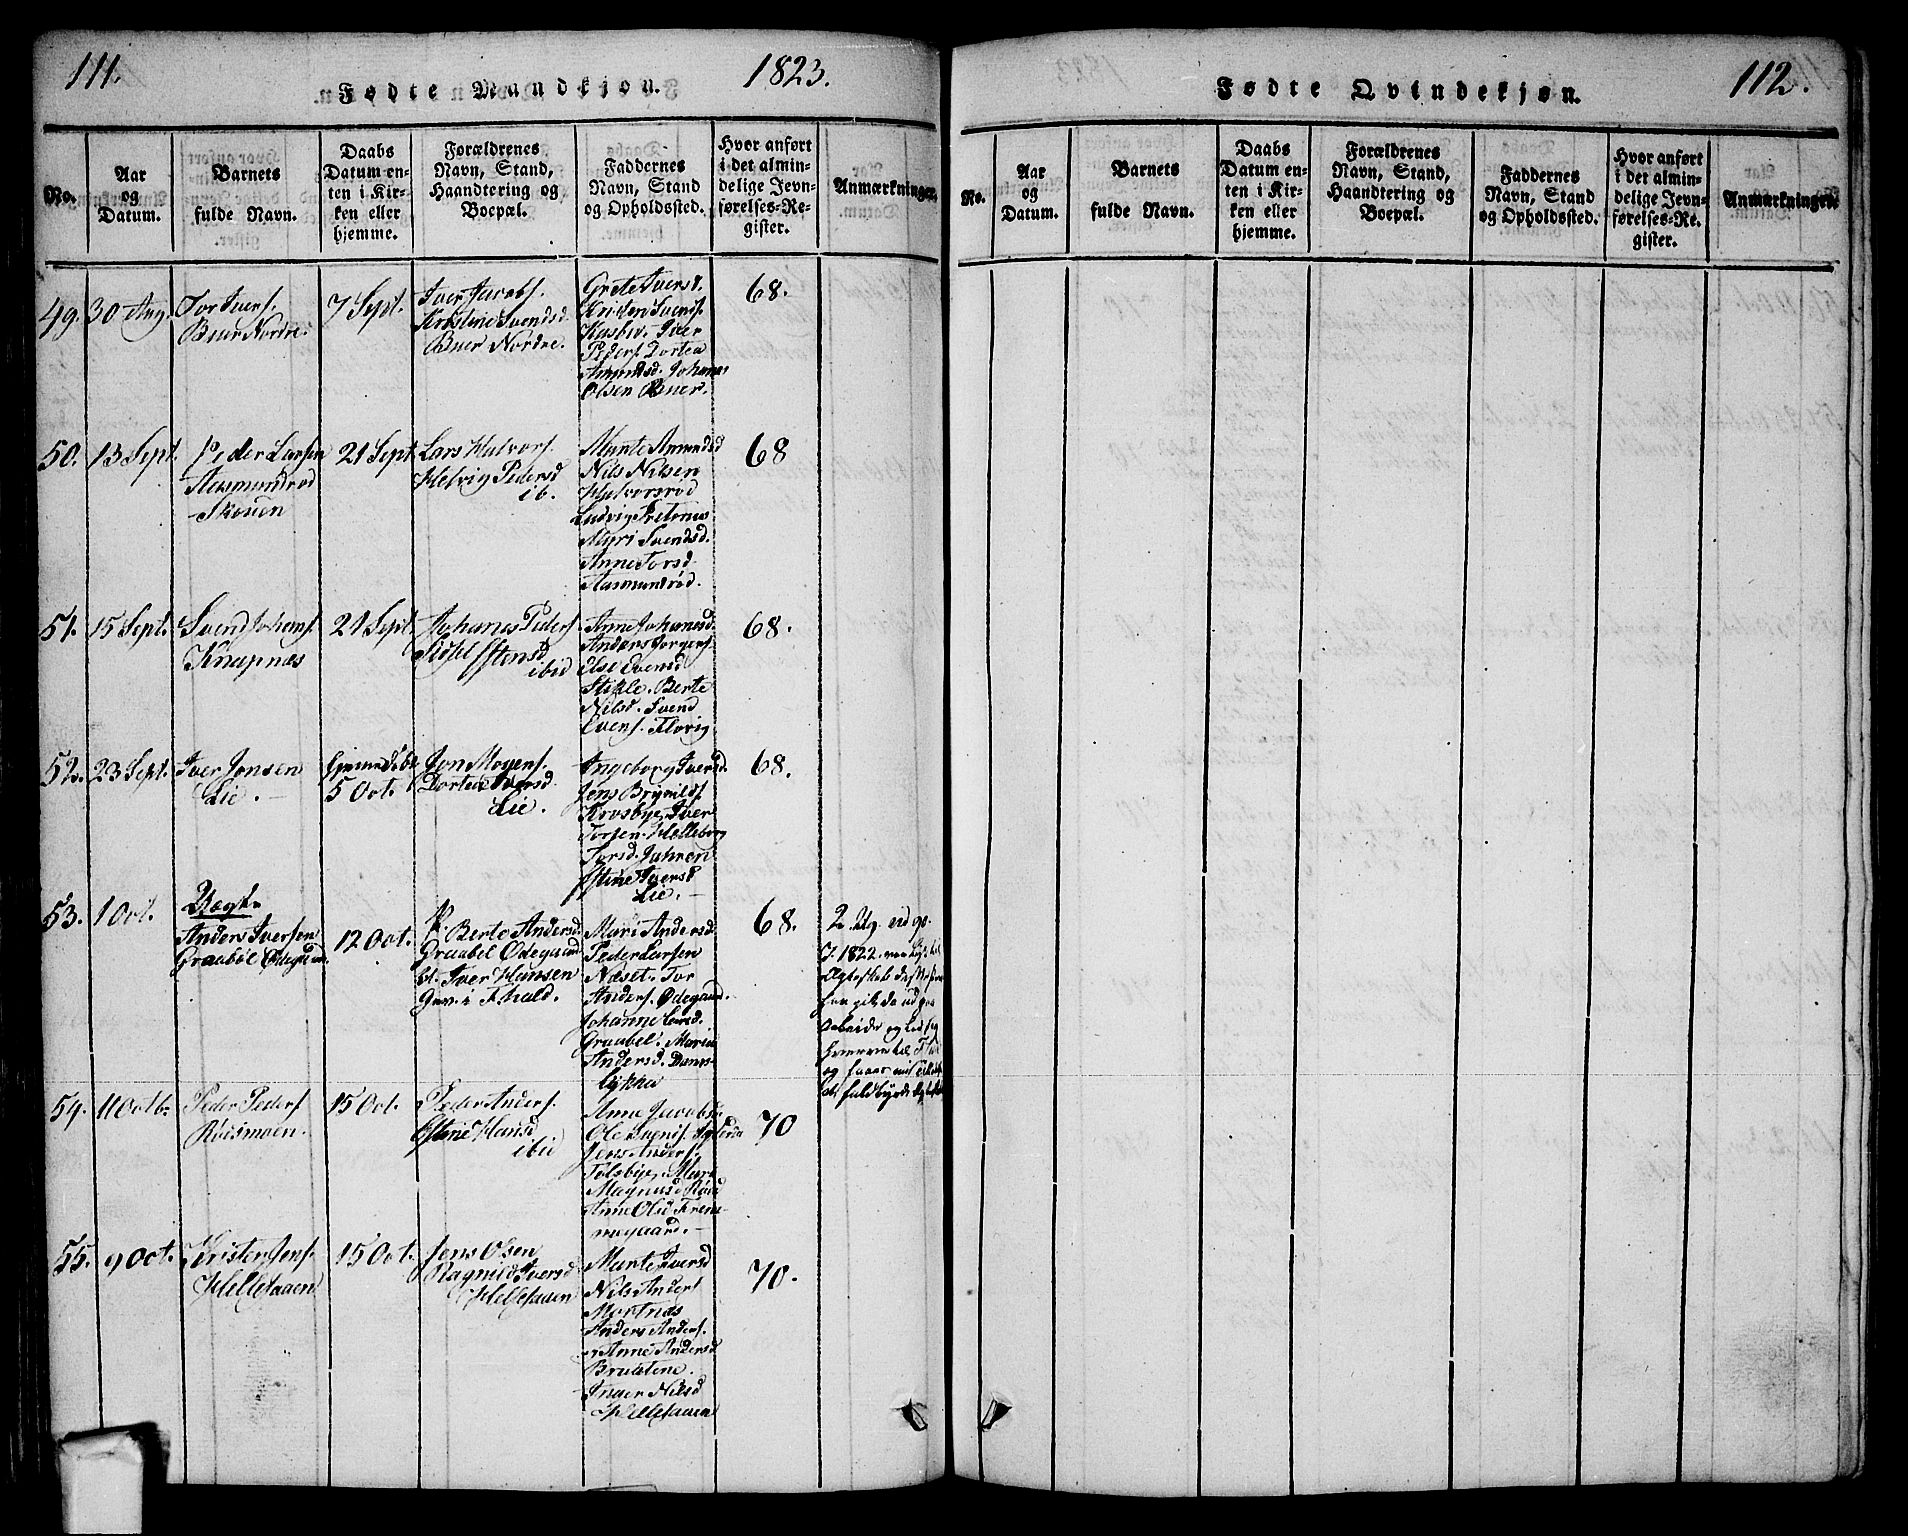 111.
Fødte Mandkjøn.
1823.
No.
Aar
og
Datum.
Barnets
fulde Navn.
Daabs
Datum en-
ten i Kir-
ken eller
hjemme.
Forældrenes
Navn, Stand,
Haandtering og
Boepæl.
Faddernes
Navn, Stand
og Opholdssted.
Hvor anført
i det almin-
delige Jevn-
førelses-Re-
gister.
Anmærkninger.
49. 30 Aug.
Tor Ivers.
Buer Nordre.
7 Sept.
Iver Jacobs.
Kirstine Svendsd.
Buer Nordre.
Grete Iversd.
Kristen Svends.
Husbv. Iver
Peders. Dortea
Amundsd. Johanes
Olsen Buer.
68.
50. 13 Sept.
Peder Larsen
Aasmundrød
Skouen
21 Sept.
Lars Halvors.
Helvig Pedersd
ib.
Marte Amundsd
Nils Nilsen
Halvorsrød
Ludvig
Mari Svendsd.
Anne Torsd.
Aasmundrød.
68
51. 15 Sept.
Svend Johans.
Knapnæs
21 Sept.
Johanes Peders.
Sidsel Estensd
ibid
Anne Johanesd.
Anders Jorgens.
Else Svensd
Stikle. Berte
Nilsd. Svend
Evens. Flovig
68.
52. 23 Sept.
Iver Jonsen
Lie.
5 Oct.
Jon Mogens.
Dortea Iversd.
Lie.
Ingeborg Iversd.
Jens Brynilds.
Krosbye, Iver
Torsen. Helleborg
Torsd. Jahren
Estine Iversd
Lie.
68.
53. 1 Oct.
Uægte
Anders Iversen
Graabøl Ødegaard.
12 Oct.
P. Berte Andersd.
Graabøl Ødegaard
U. Iver Hansen
Gev. i Fhald.
Mari Andersd
Peder Larsen
Næset. Tor
Anders. Ødegaard.
Johanne Larsd.
Graabøl. Maria
Andersd. Dams-
lykka
68.
2. Ug. eid ge.
I. 1822. var lyst til
Ægteskab
han gik da ud paa
Arbeide og lod sig
hverve til F
og faaer
at fuldbyrde Ægtesk
54. 11 Octb.
Peder Peders.
Röismoen.
15 Oct.
Peder Anders.
Estine Hansd
ibid
Anne Jacobsd
Ole Svens.
Jens Anders.
Tolsbye, Mari
Magnusd Röed
Anne Olsd Frene-
mogaard.
70
55. 9 Oct.
Krister Jens.
Hellesaaen
15 Oct.
Jens Olsen
Ragnild Iversd
Hellesaaen
Marte Iversd
Nils Anders
Mortnæs
Anders Anders.
Anne Andersd
Braatene.
Inger Nilsd
Hellesaaen
70.
112.
Fødte Qvindekjøn.
No.
Aar
og
Datum.
Barnets
fulde Navn.
Daabs
Datum en-
ten i Kir-
ken eller
hjemme.
Forældrenes
Navn, Stand,
Haandtering og
Boepæl.
Faddernes
Navn, Stand
og Opholdssted.
Hvor anført
i det almin-
delige Jevn-
førelses-Re-
gister.
Anmærkninger.